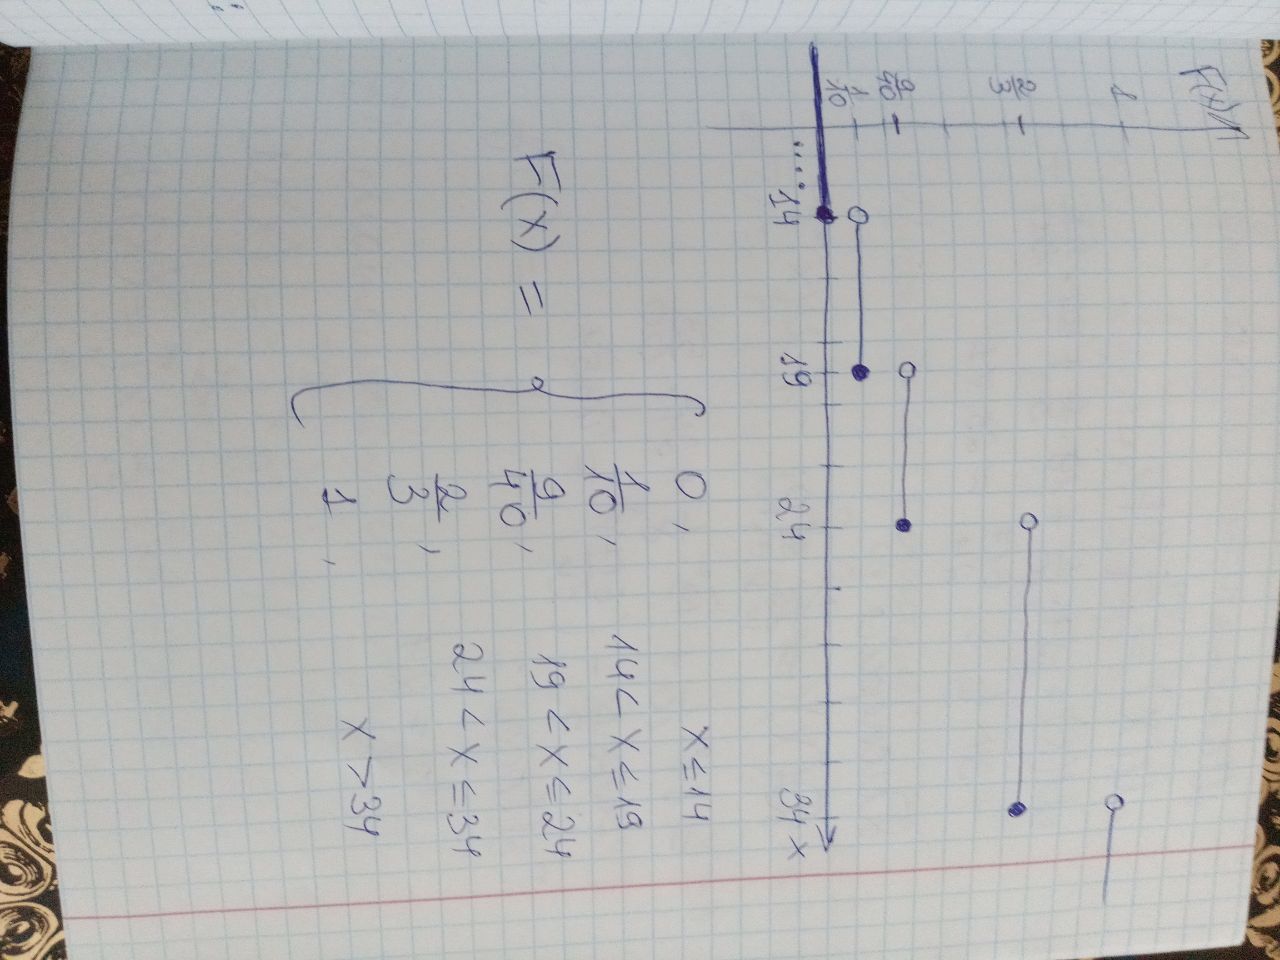 F(x)
1
2/3
9/40
1/10
....14 19 24 34 x
0, x ≤ 14
1/10, 14 < x ≤ 19
F(x) = { 9/40, 19 < x ≤ 24
2/3, 24 < x ≤ 34
1, x > 34